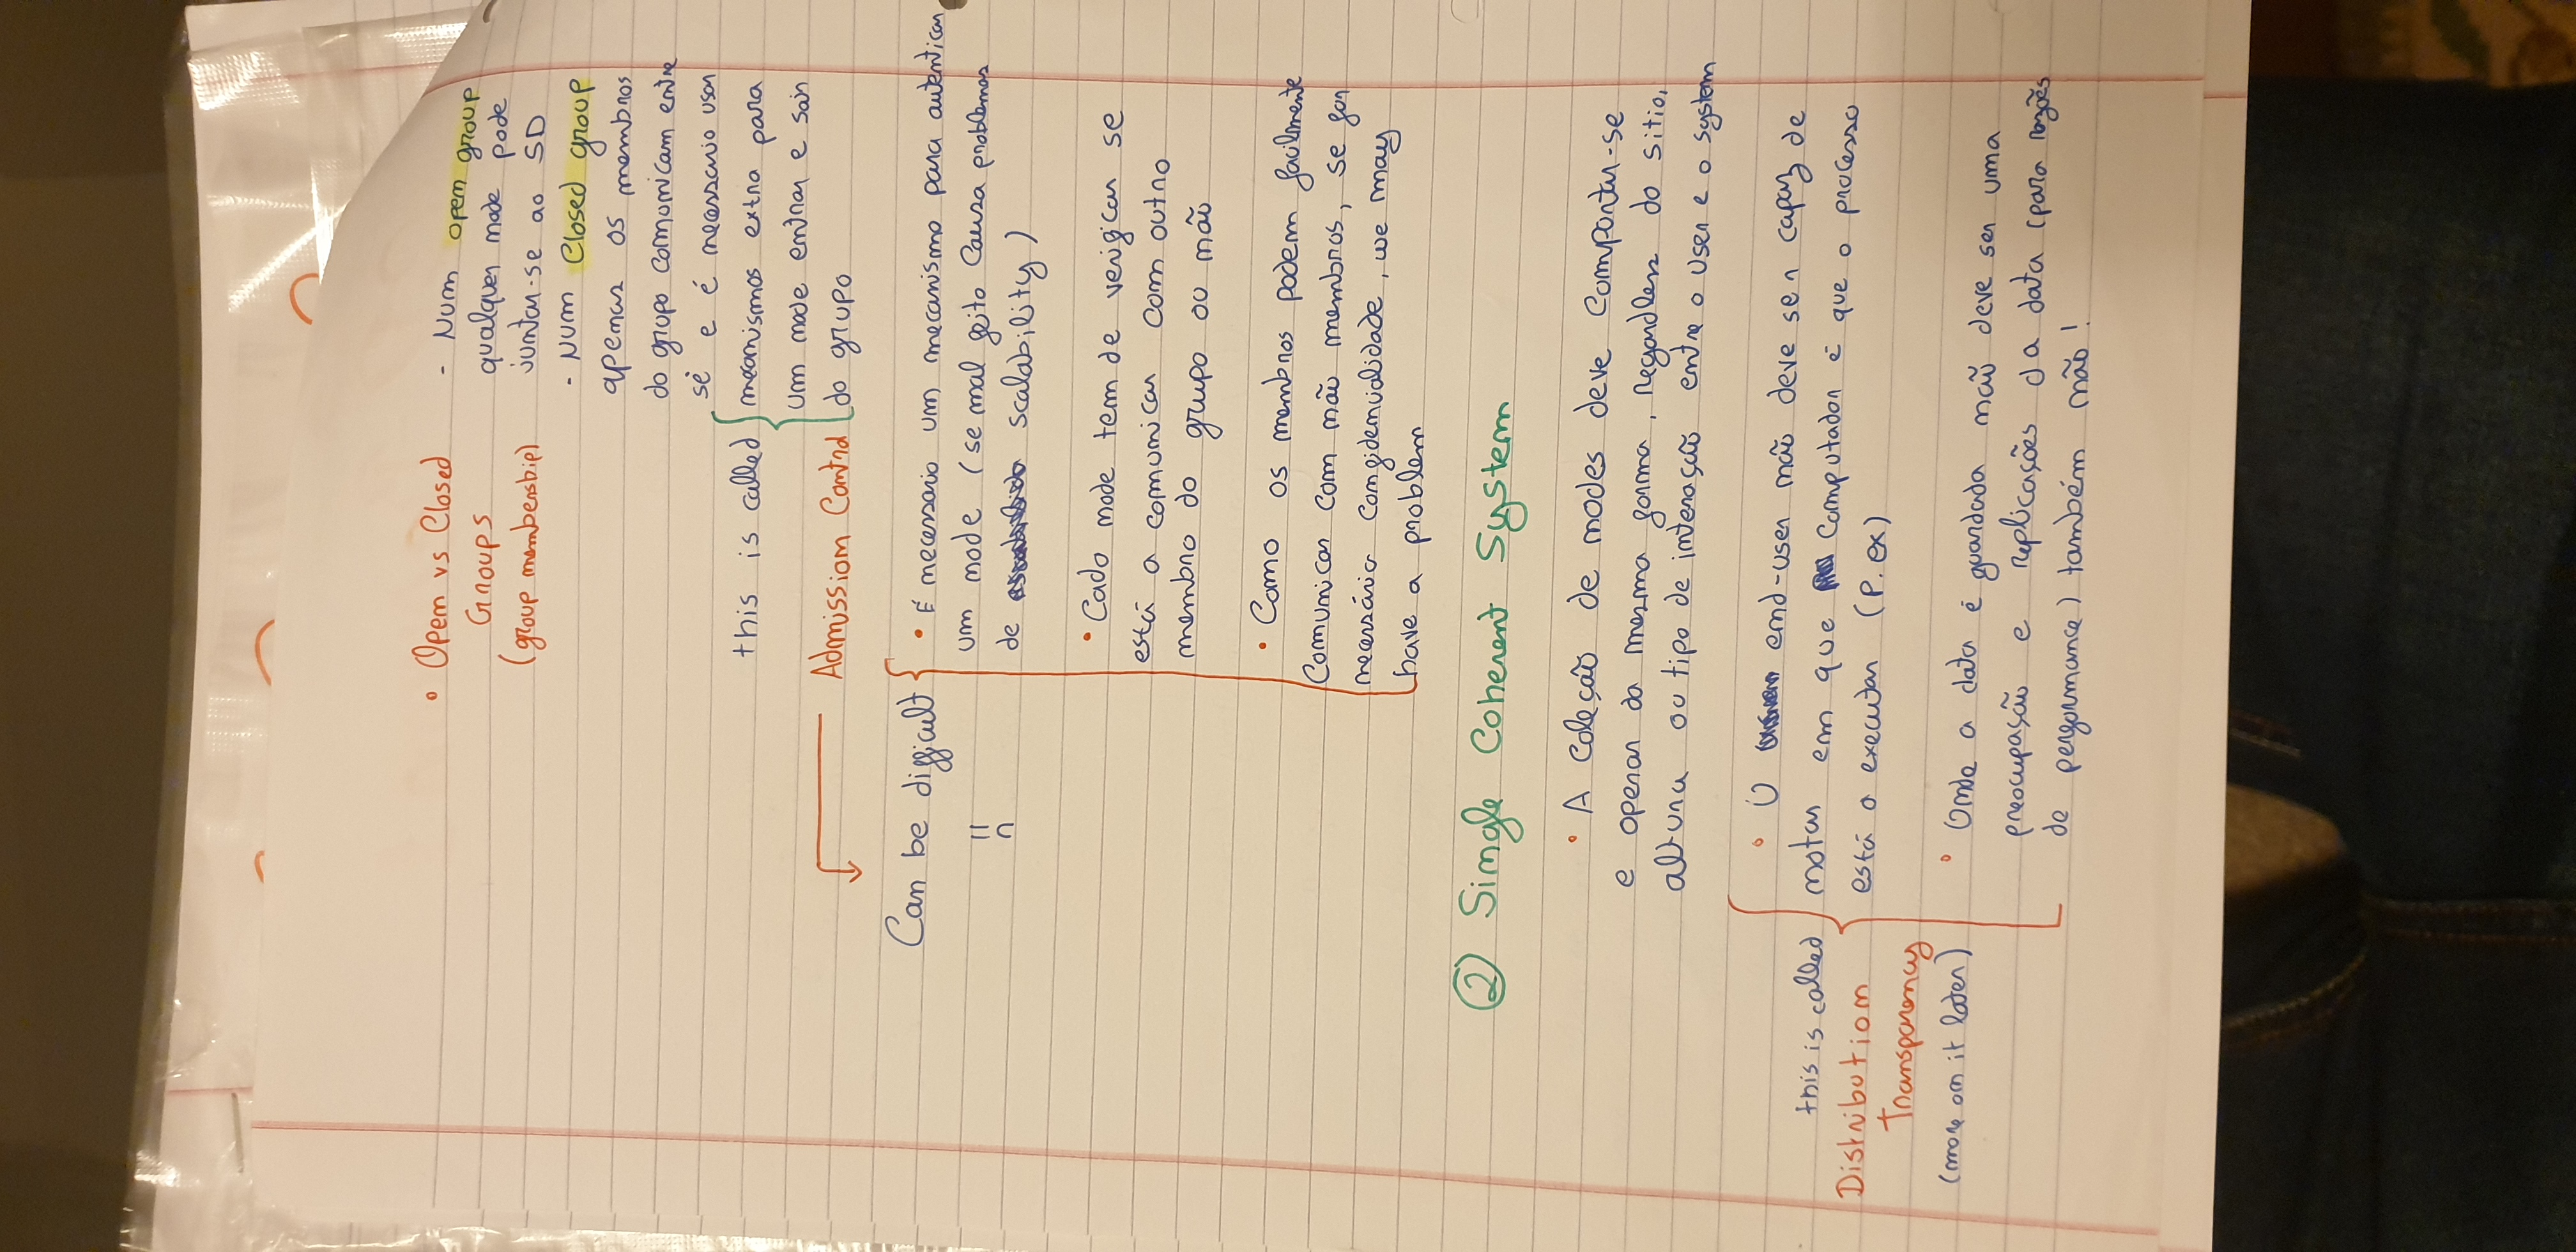 • Open vs Closed
Groups
(group membership)
- Num open group
qualquer node pode
juntar-se ao SD
- Num Closed group
apenas os membros
do grupo comunicam entre
sí e é necessario usar
mecanismos extra para
um node entrar e sair
do grupo
this is called
Admission Control
Can be difficult
• É necessario um mecanismo para autenticar
um node (se mal feito Causa problemas
de scalability)
• Cada node tem de verificar se
está a comunicar com outro
membro do grupo ou não
• Como os membros podem facilmente
Comunicar com não membros, se for
necessária confidencialidade, we may
have a problem
② Single Coherent System
• A coleção de nodes deve Comportar-se
e operar da mesma forma, regardless do sitio,
altura ou tipo de interação entre o user e o system
• O end-user não deve ser capaz de
notar em que Computador é que o processo
está a executar (P. ex)
this is called
Distribution
Transparency
(more on it later)
• Onde a data é guardada não deve ser uma
preocupação e replicações da data (para razões
de performance) também não!